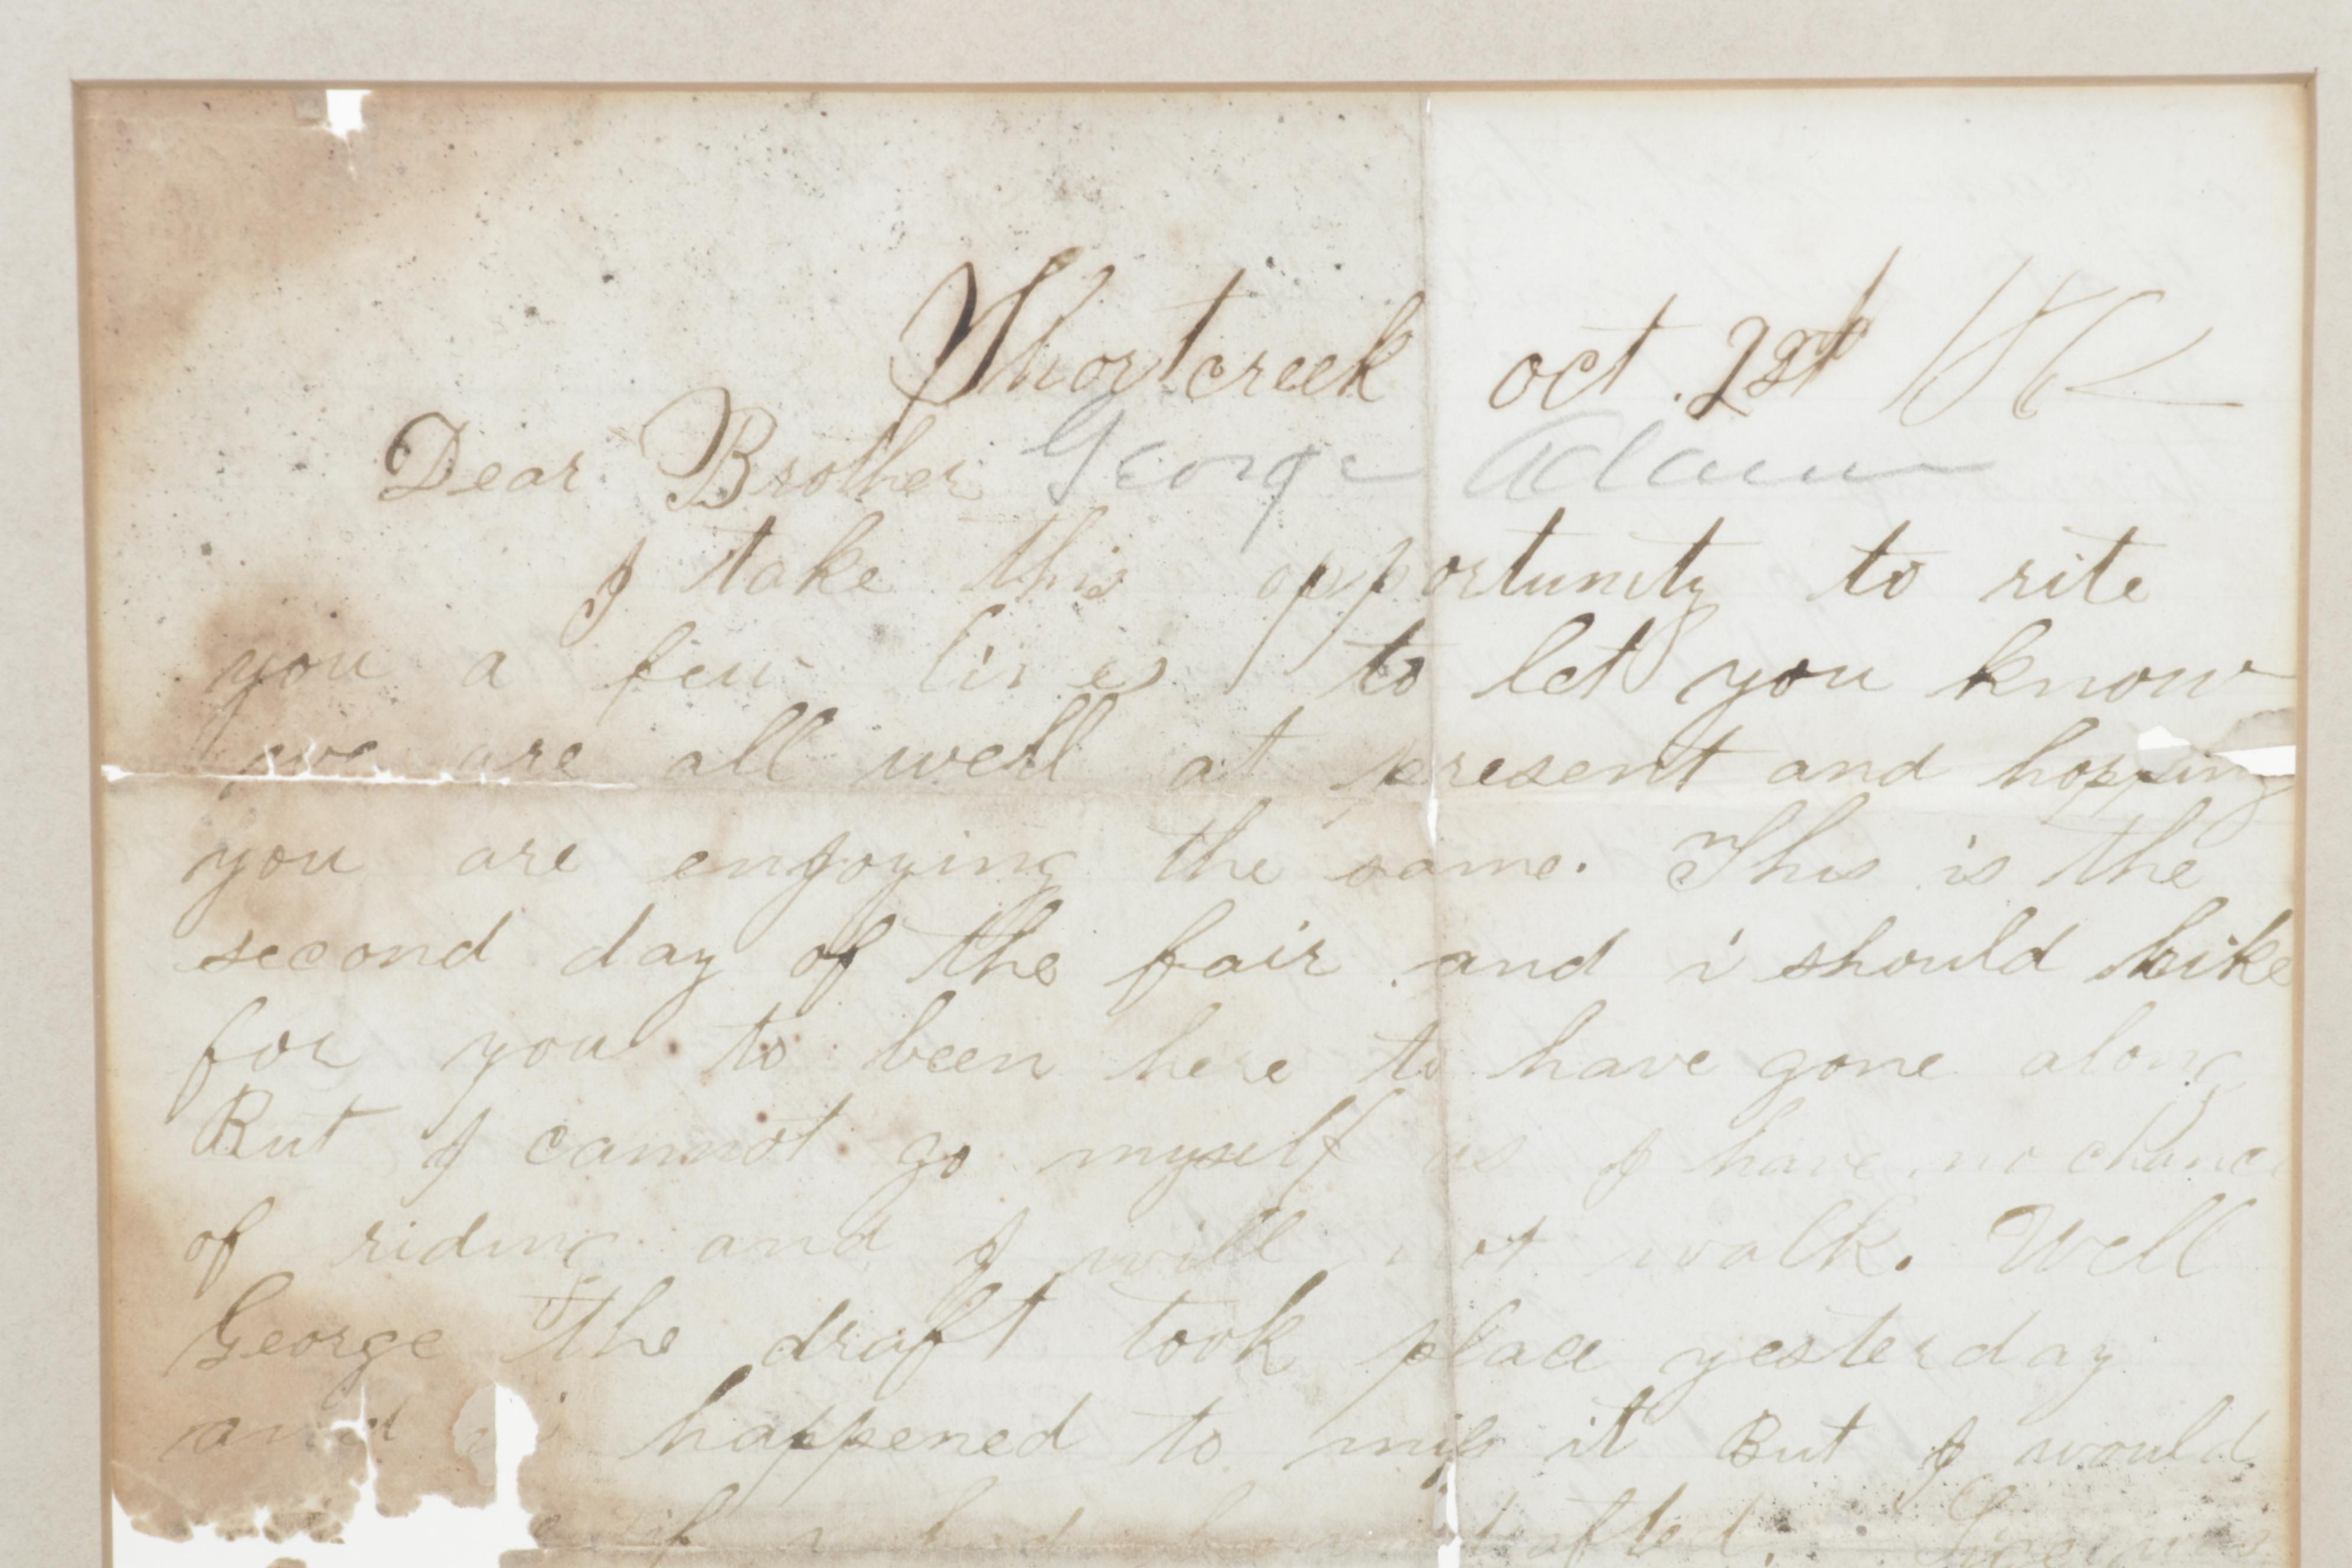 Shortcreek oct. 21st 1862
Dear Brother George Adam
I take this opportunity to rite
you a few lines to let you know
we are all well at present and hopping
you are enjoying the same. This is the
second day of the fair and i should like
for you to been here to have gone along
But I cannot go myself as I have no chance
of riding and I will not walk. Well
George The draft took place yesterday
and i happened to miss it But I would
if i had drafted.